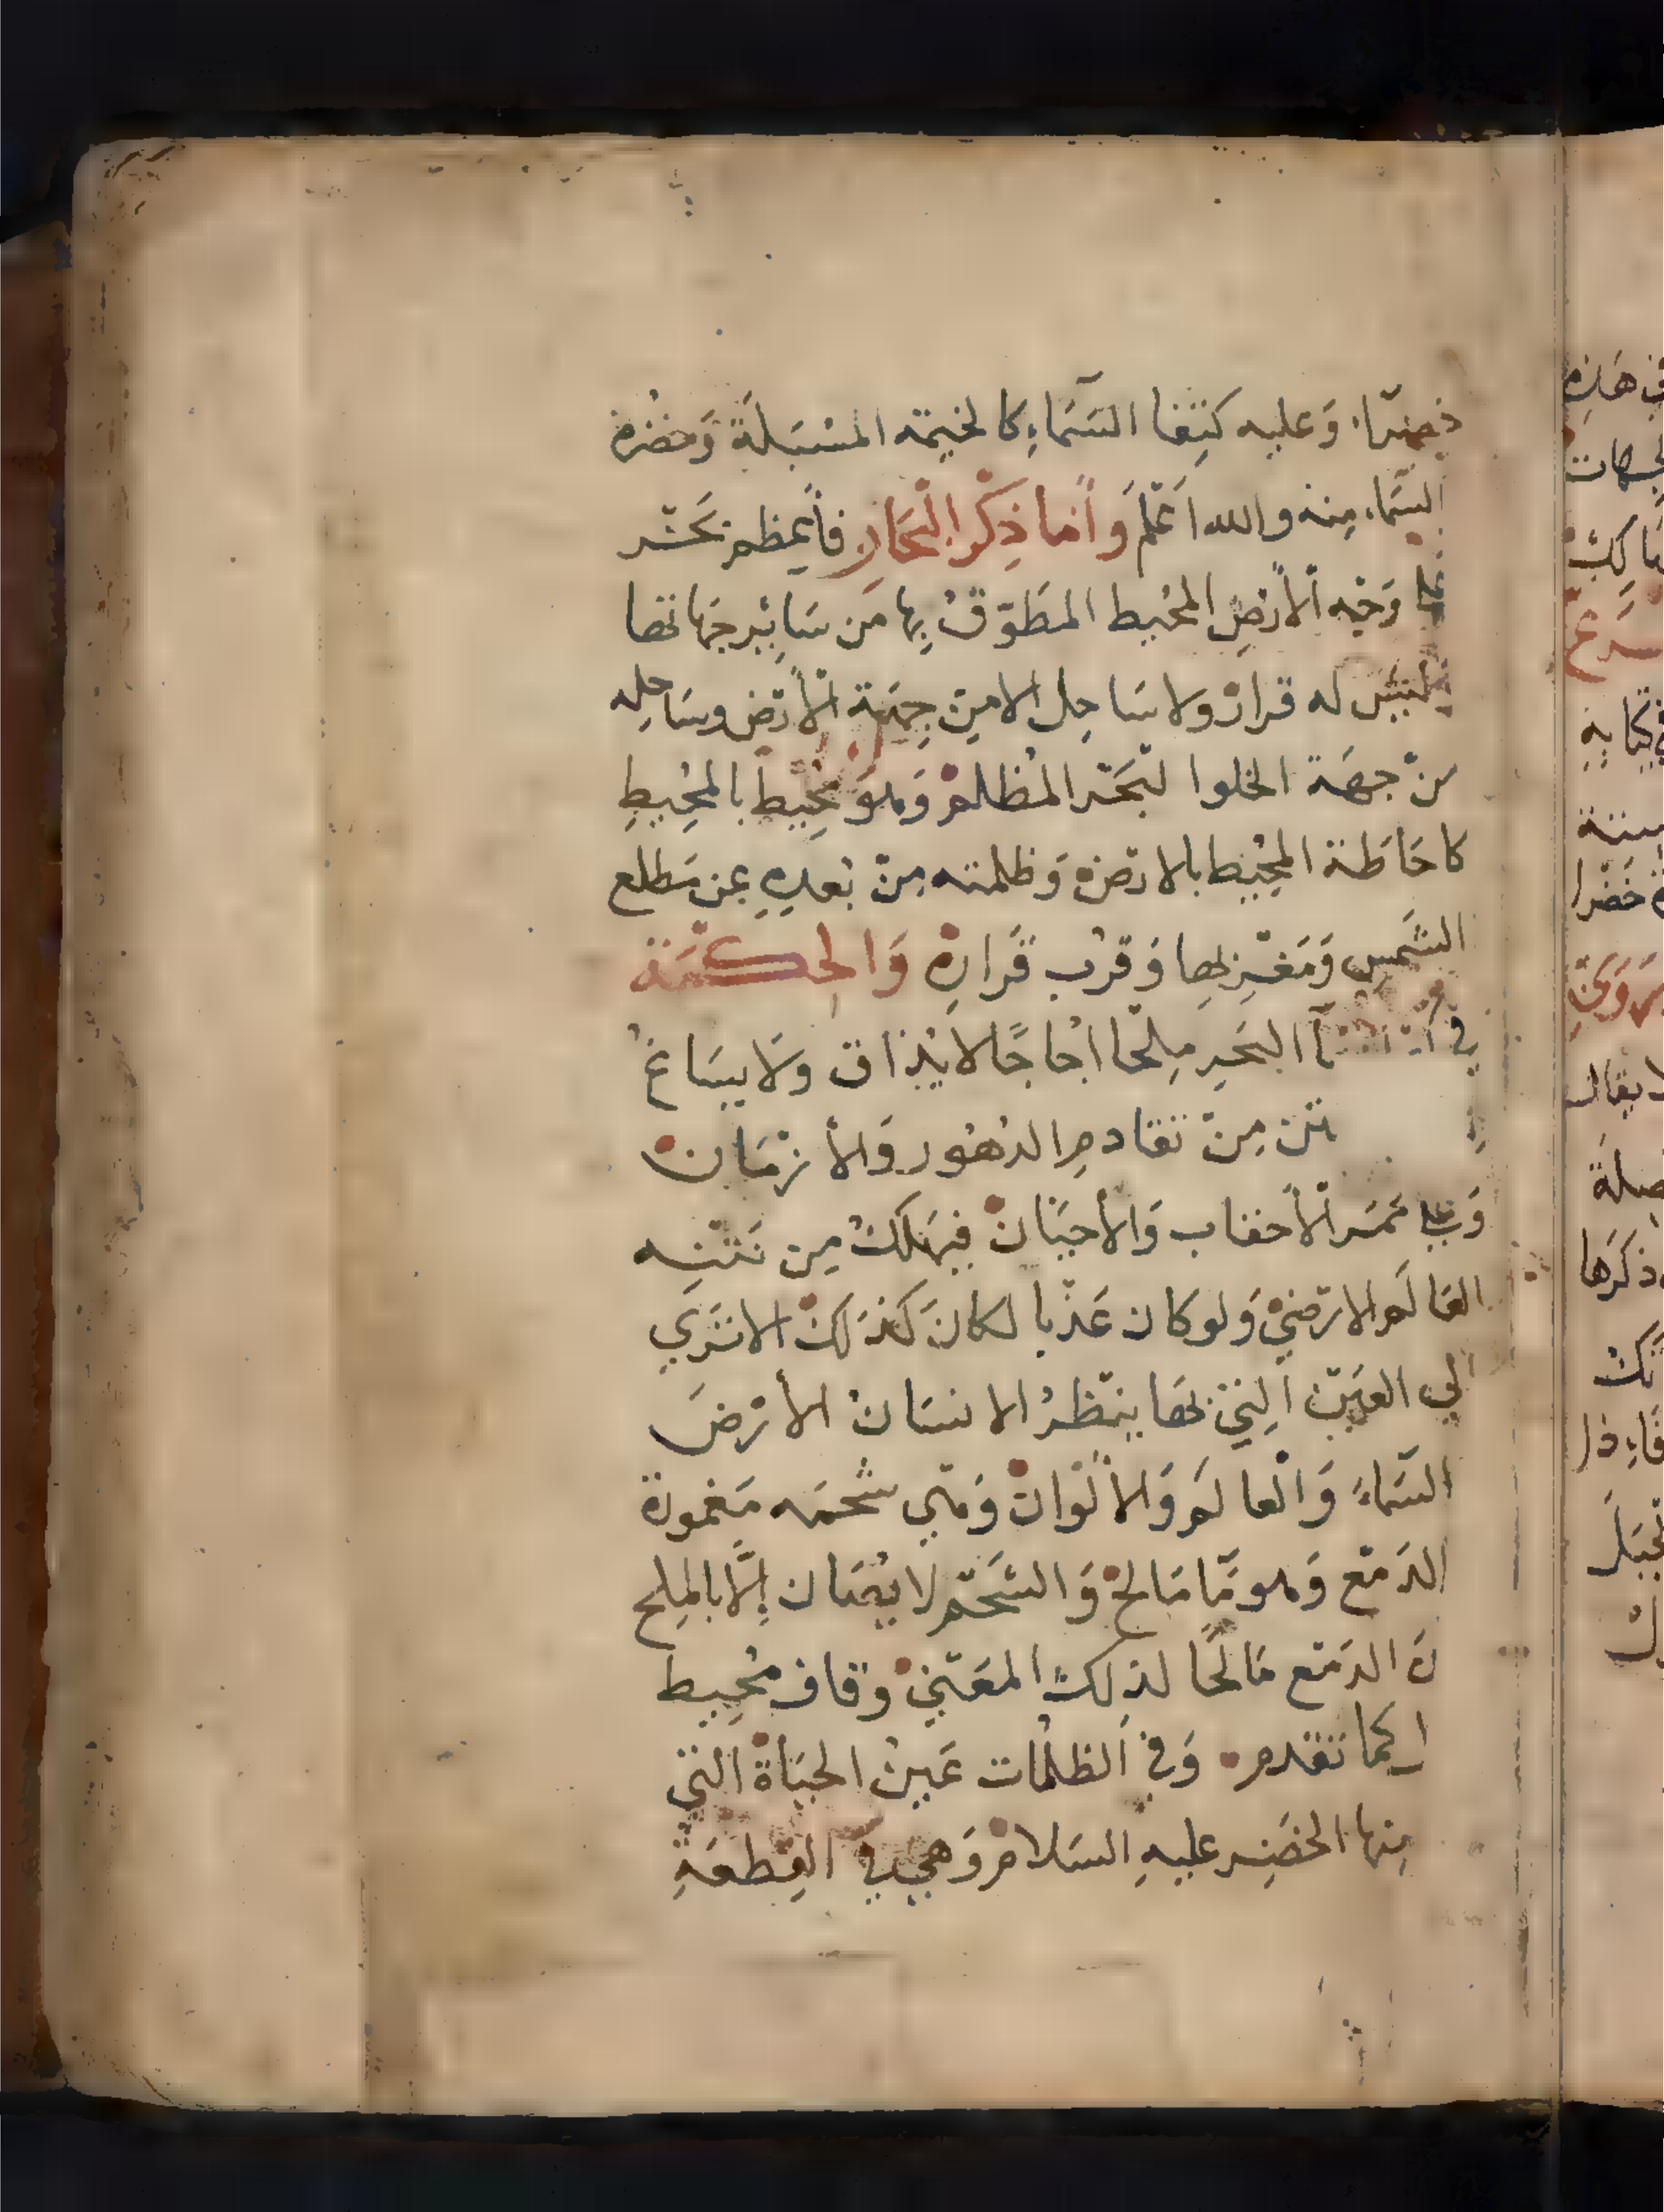 خضرا، وَعليه كتفا السَّمَاءِ كالخيمَه المسْبَلَة وَخضرة
السَّمَاء مِنه والله اَعْلَم وَأما ذِكْر الْبحَارِ فأعظم بَحْر
علي وَجْه الأرْضِ المحْيط المطَوّق بِها مَن سَائِير جهَاتها
ليْسَ له قرارْ ولا سَاحِل الا مِن جِهَة الأرْض وسَاحِله
منْ جهَة الخلوا لبَحْر المظلم وَهوَ مُحِيط بالمحِيطِ
كاحَاطة المحِيْط بالارْضْ وَظلمته مِنْ بُعدِهِ عن مَطلع
الشَّمسِ وَمَغْرِبها وَقرْب قَرارِهْ وَالحِكْمَة
في مآ البَحرِ مِلحًا اُجاجًا لا يُذاق وَلا يسَاغ
تن مِنْ تقادم الدهُور وَالأزْمَانْ
وَعلي ممَر الأحقاب وَالأحيَانْ فيهَلكْ مِن نَتْنِه
العَالَم الارْضيْ وَلو كان عَذْبا لكانَ كَذلكْ الا تَري
الي العَيْن الِتي بها ينْظرُ الانسَانْ الأرْضَ
السَّماءَ وَالْعالَم وَالألْوانْ وَهي شحمَه مَغمورة
الدَمْع وَهو مَا مَالحْ وَالشَحْم لا يُصَان إِلَّا بالمِلح
نَ الدَمْع مَالحًا لذلكْ المعَنيْ وَقاف مُحِيط
ا كما تقدم وَفي الظلْمات عَيْن الحَيَاةْ التي
مِنها الخضِر عليهِ السَلامْ وَهي في القِطعَةِ
في هَذِه
خَضْرا
ذكَرَها
فَاِذا